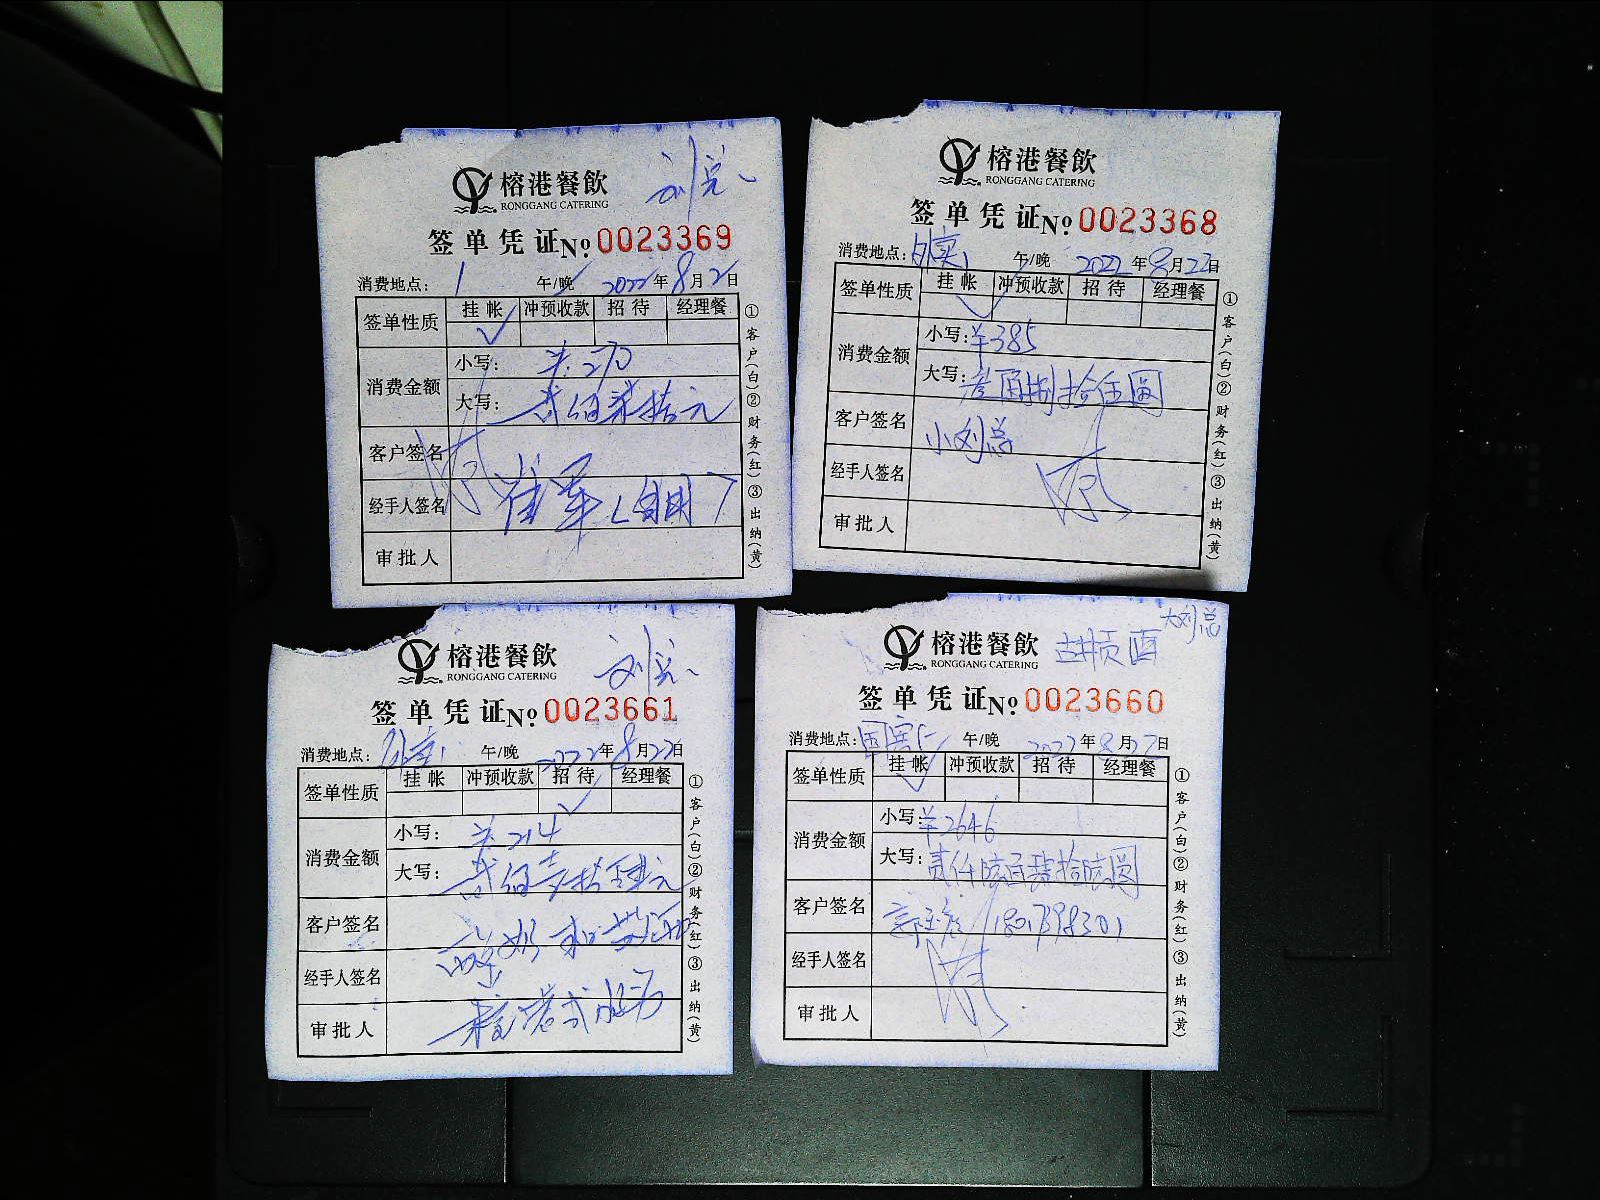 榕港餐飲
RONGGANG CATERING
刘总
签单凭证 № 0023369
消费地点: 1 午/晚 2022年8月21日
签单性质 挂帐 冲预收款 招待 经理餐
✓
消费金额 小写: ¥270
大写: 贰佰柒拾元
客户签名
经手人签名 (自用)
审批人
①客户(白)②财务(红)③出纳(黄)
榕港餐飲
RONGGANG CATERING
签单凭证 № 0023368
消费地点: 午/晚 2022年8月22日
签单性质 挂帐 冲预收款 招待 经理餐
✓
消费金额 小写: ¥385
大写: 叁佰捌拾伍圆
客户签名 小刘总
经手人签名
审批人
①客户(白)②财务(红)③出纳(黄)
榕港餐飲
RONGGANG CATERING
刘总
签单凭证 № 0023661
消费地点: 午/晚 2022年8月22日
签单性质 挂帐 冲预收款 招待 经理餐
✓
消费金额 小写: ¥214
大写: 贰佰壹拾肆元
客户签名
经手人签名
审批人
①客户(白)②财务(红)③出纳(黄)
大刘总
榕港餐飲
RONGGANG CATERING
签单凭证 № 0023660
消费地点: 午/晚 2022年8月22日
签单性质 挂帐 冲预收款 招待 经理餐
✓
消费金额 小写: ¥2646
大写: 贰仟陆百肆拾陆圆
客户签名
经手人签名
审批人
①客户(白)②财务(红)③出纳(黄)